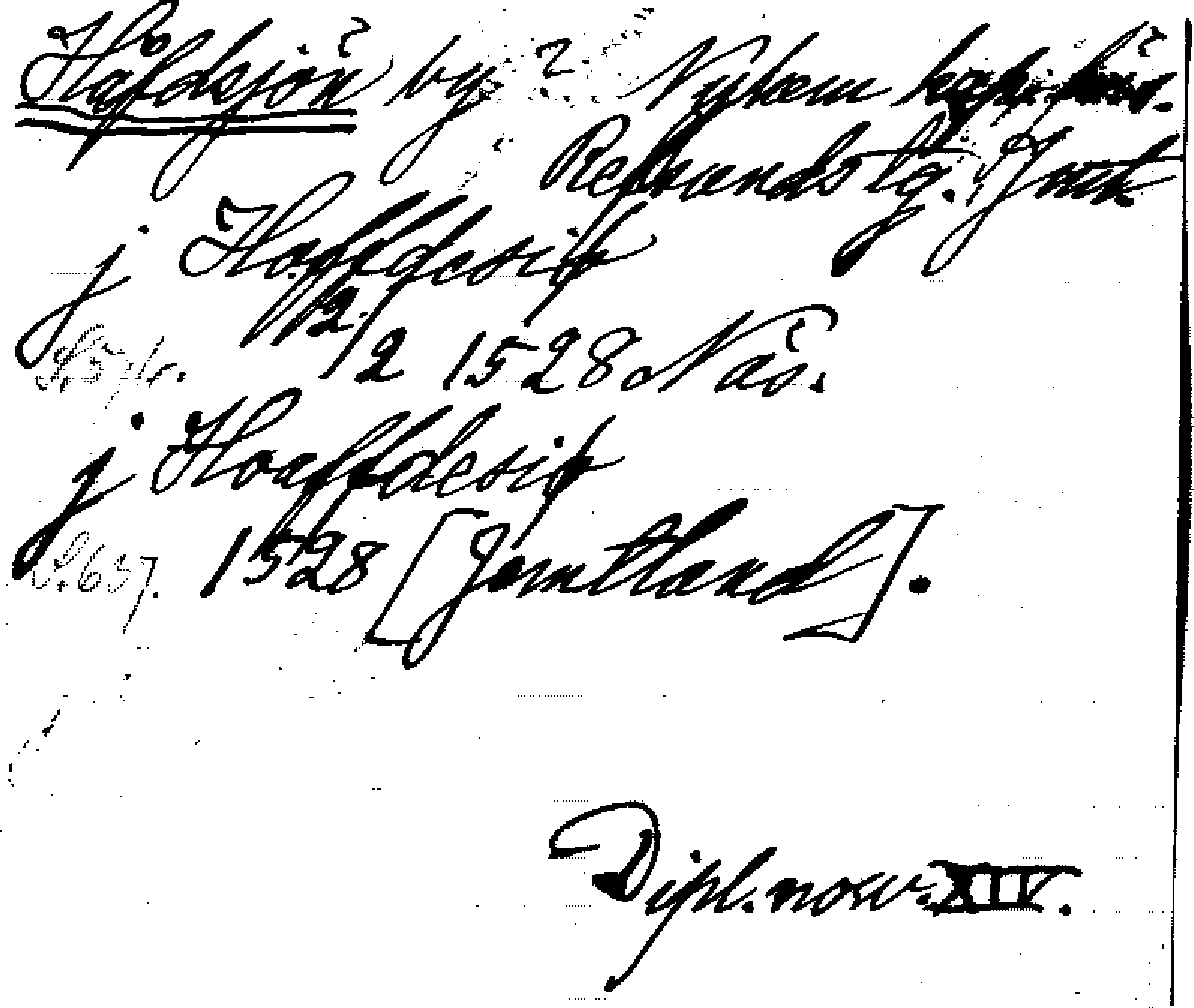 Håfdsjön by ? Nyhem kap. förs.
Refsunds tg. Jmtl
j Haffdesiø
12/2 1528 Näs.
S. 574.
j Hoaffdesiø
S. 637. 1528 [Jemtland].
Dipl. norv. XIV.